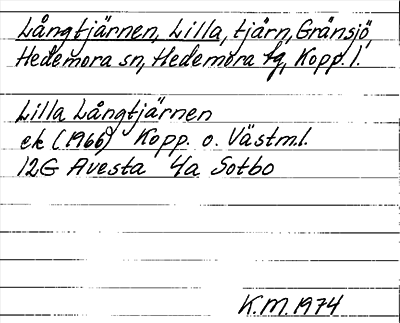 Långtjärnen, Lilla, tjärn, Gränsjö,
Hedemora sn, Hedemora tg, Kopp. l.
Lilla Långtjärnen
ek (1966) Kopp. o. Västml.
12G Avesta 4a Sotbo
K.M. 1974